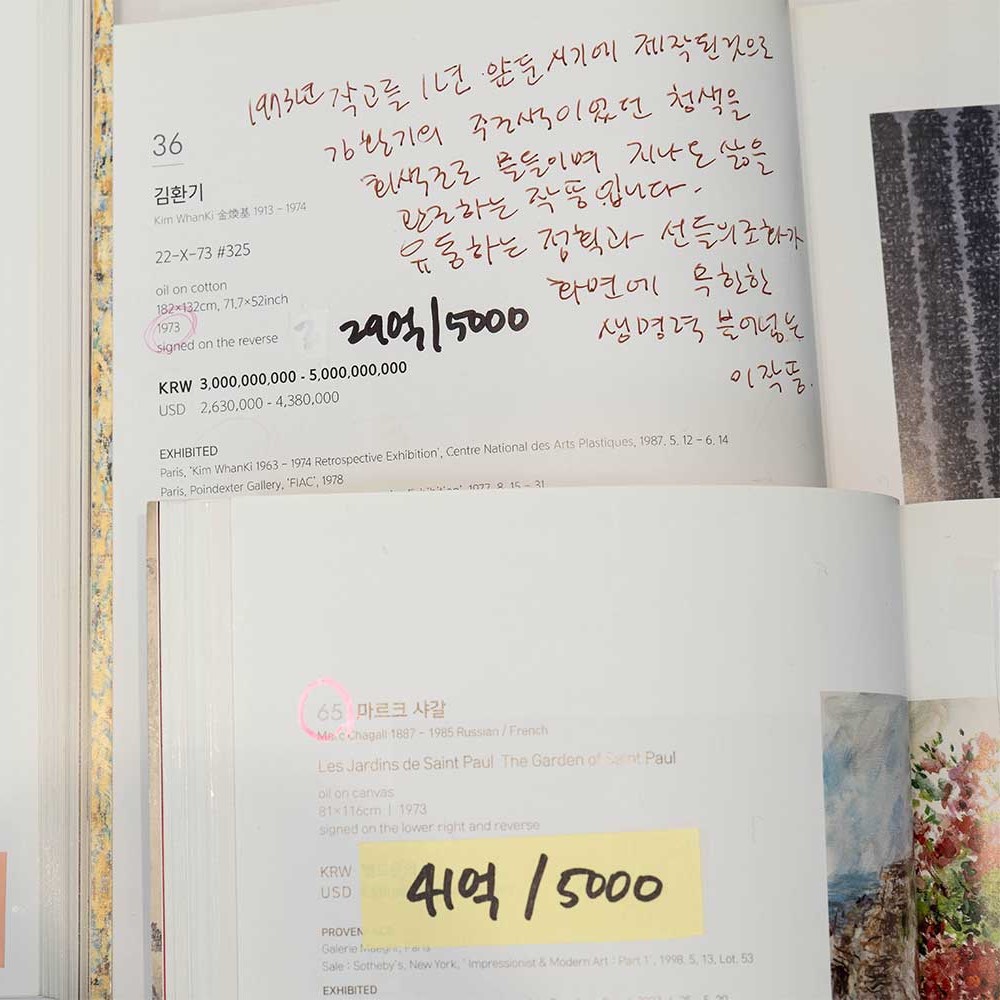 1973년 작고를 1년 앞둔 시기에 제작된 것으로
김환기의 주조색이었던 청색을
회색조로 물들이며 지나온 삶을
관조하는 작품입니다.
유동하는 점획과 선들의 조화가
화면에 특한한
생명력 불어넣는
이 작품.
36
김환기
Kim WhanKi 金煥基 1913 - 1974
22-X-73 #325
oil on cotton
182×132cm, 71.7×52inch
1973
signed on the reverse
29억/5000
KRW 3,000,000,000 - 5,000,000,000
USD 2,630,000 - 4,380,000
EXHIBITED
Paris, 'Kim WhanKi 1963 - 1974 Retrospective Exhibition', Centre National des Arts Plastiques, 1987. 5. 12 - 6. 14
Paris, Poindexter Gallery, 'FIAC', 1978
1977. 8. 15 - 31
65 마르크 샤갈
Marc Chagall 1887 - 1985 Russian / French
Les Jardins de Saint Paul The Garden of Saint Paul
oil on canvas
81×116cm | 1973
signed on the lower right and reverse
KRW
USD
41억/5000
PROVEN
Galerie Maeght, Paris
Sale : Sotheby's, New York, ' Impressionist & Modern Art : Part 1', 1998. 5. 13, Lot. 53
EXHIBITED